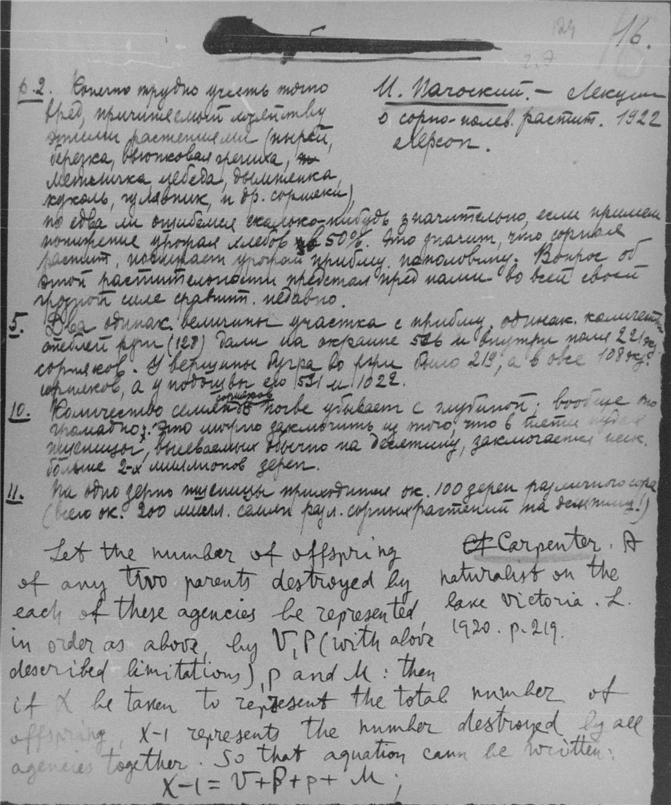 16.
р. 2. Конечно трудно учесть точно
вред, причиняемый хозяйству
этими растениями (пырей,
березка, вьюнковая гречиха,
метличка лебеда, дымянка,
куколь, гулявник, и др. сорняки)
но едва ли ошибемся сколько-нибудь значительно, если примем
понижение урожая хлебов в 50%. Это значит, что сорная
растит. понижает урожай прибли. наполовину. Вопрос об
этой растительности предстал пред нами во всей своей
грозной силе сравнит. недавно.
И. Пачоский. — Лекции
о сорно-полев. растит. 1922
Херсон.
5. Два одинак. величины участка с прибли. одинак. количест.
стеблей ржи (128) дали на окраине 526 и внутри поля 221 экз.
сорняков. У вершины бугра во ржи было 219, а в овсе 108 экз.
сорняков, а у подошвы его 531 и 1022.
10. Количество семян сорняков в почве убывает с глубиной; вообще оно
громадно: Это можно заключить из того, что в пяти пудах
пшеницы, высеваемых обычно на десятину, заключается неск.
больше 2-х миллионов зерен.
11. На одно зерно пшеницы приходится ок. 100 зерен различного сора
(всего ок. 200 милл. семян разл. сорных растений на десятину!)
Let the number of offspring
of any two parents destroyed by
each of these agencies be represented,
in order as above, by V, P (with above
described limitations), p and M: then
if X be taken to represent the total number of
offspring, X-1 represents the number destroyed by all
agencies together. So that aquation cann be written:
X-1 = V+P+p+ M;
Cf Carpenter. A
naturalist on the
lake Victoria. L.
1920. p. 219.